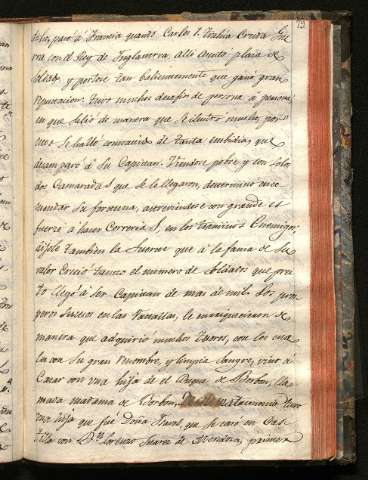 73
paso á Francia quando Carlos 8. tenia Cruda Gue
rra con el Rey de Inglaterra. Alli sentó plaza de
soldado, y portose tan valientemente que ganó gran
reputacion. tuvo muchos desafios de persona á persona
en que salio de manera que se ilustro mucho, pero
como se halló con tanta embidia, que
desamparó á su Capitan. Viendose pobre, y con solo
dos Camaradas que se le llegaron, determinó enco
mendar su fortuna, atreviendose con grande es
fuerzo á hacer Correrias, en los terminos Enemigos.
tambien la suerte que á la fama de su
valor Crecio tanto el numero de Soldados que pres
to llegó á ser Capitan de mas de mil. Los pros
peros sucesos en las Batallas, le enriquecieron de
manera que adquirio muchos thesoros, con los qua
les con su gran renombre, y limpia sangre, vino á
Casar con una hija de el Duque de Borbon, lla
mada madama de Borbon, tuvo
una hija que fué Doña Ines, que se casó en Cas
tilla con Dn. Lorenzo Suarez de Mendoza, primero